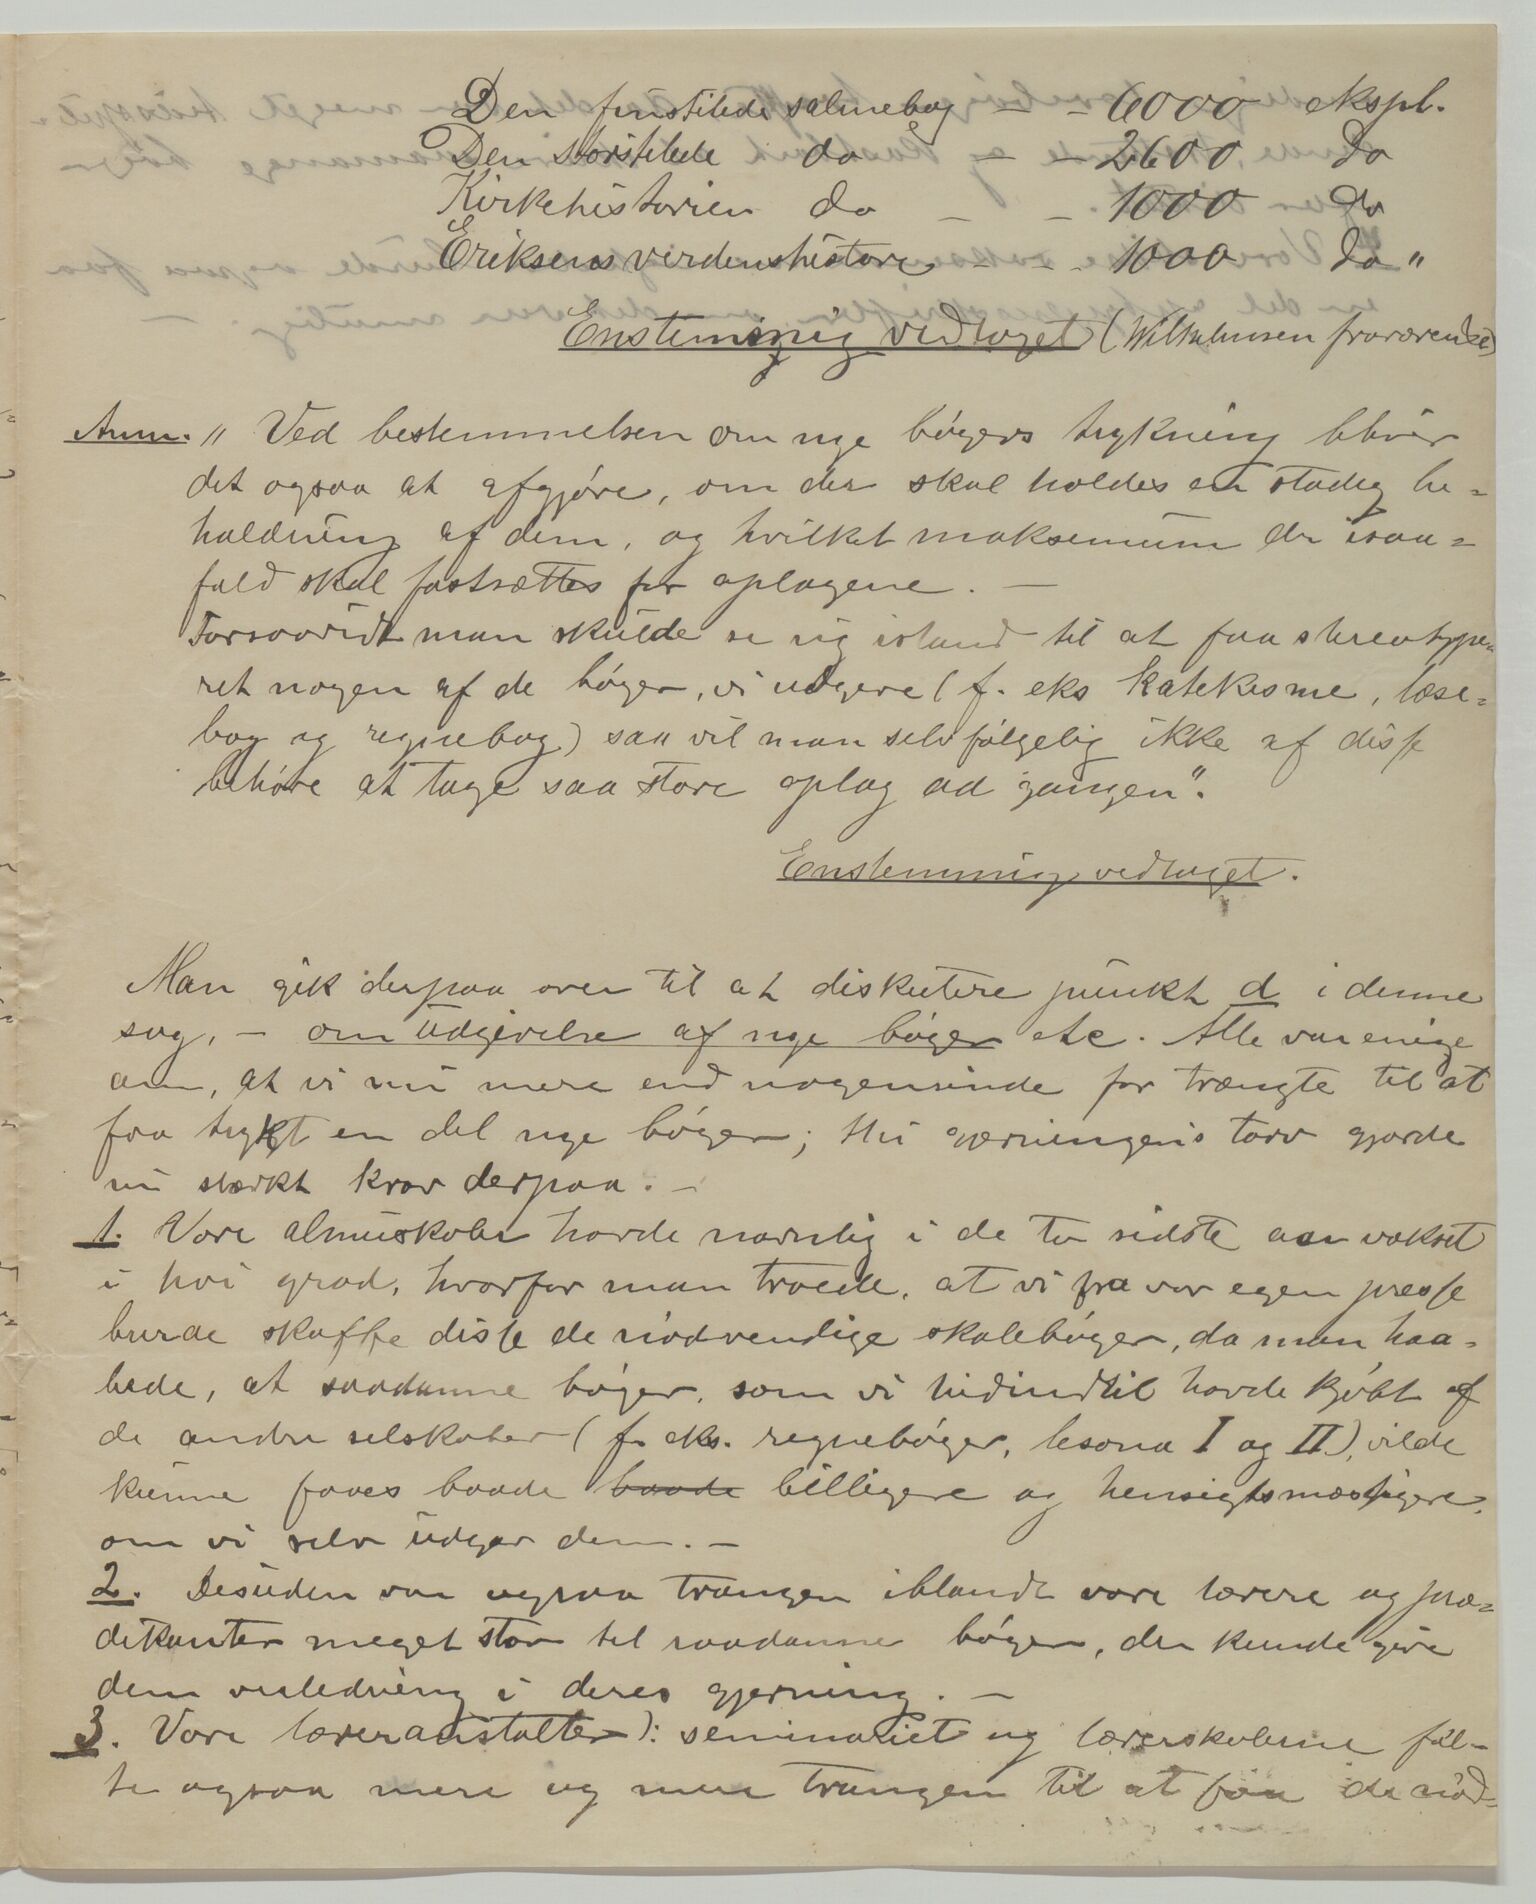 Den finstilede salmebog — - 6000 ekspl.
Den storstilede do — - 2600 do
Kirkehistorien do — - 1000 do
Eriksens verdenshistorie - - - 1000 do "
Enstemmig vedtaget (Wilhelmsen fraværende)
Anm. „ Ved bestemmelsen om nye bøgers trykning bliver
det ogsaa at afgjøre, om der skal holdes en stadig be=
holdning af dem, og hvilket maksimum der isaa=
fald skal fastsættes for oplagene. —
Forsaavidt man skulde se sig istand til at faa stereotype-
ret nogen af de bøger, vi udgive (f. eks katekisme, læse=
bog og regnebog) saa vil man selvfølgelig ikke af disse
behøve at tage saa store oplag ad gangen".
Enstemmig vedtaget.
Man gik derpaa over til at diskutere punkt d i denne
sag, – om udgivelse af nye bøger etc. Alle var enige
om, at vi nu mere end nogensinde før trængte til at
faa trykt en del nye bøger; thi gjerningens tarv gjorde
nu stærkt krav derpaa. –
1. Vore almuskoler havde navnlig i de to sidste aar vokset
i høi grad, hvorfor man troede, at vi fra vor egen presse
burde skaffe disse de nødvendige skolebøger, da man haa=
bede, at saadanne bøger, som vi hidindtil havde kjøbt af
de andre selskaber (f. eks. regnebøger, lesona I og II), vilde
kunne faaes baade baade billigere og hensigtsmæssigere,
om vi selv udgav dem. –
2. Desuden var ogsaa trangen iblandt vore lærere og præ=
dikanter meget stor til saadanne bøger, der kunde give
dem veiledning i deres gjerning. —
3. Vore læreranstalter): seminariet og lærerskolerne føl-
te ogsaa mere og mere trangen til at faa de nød=